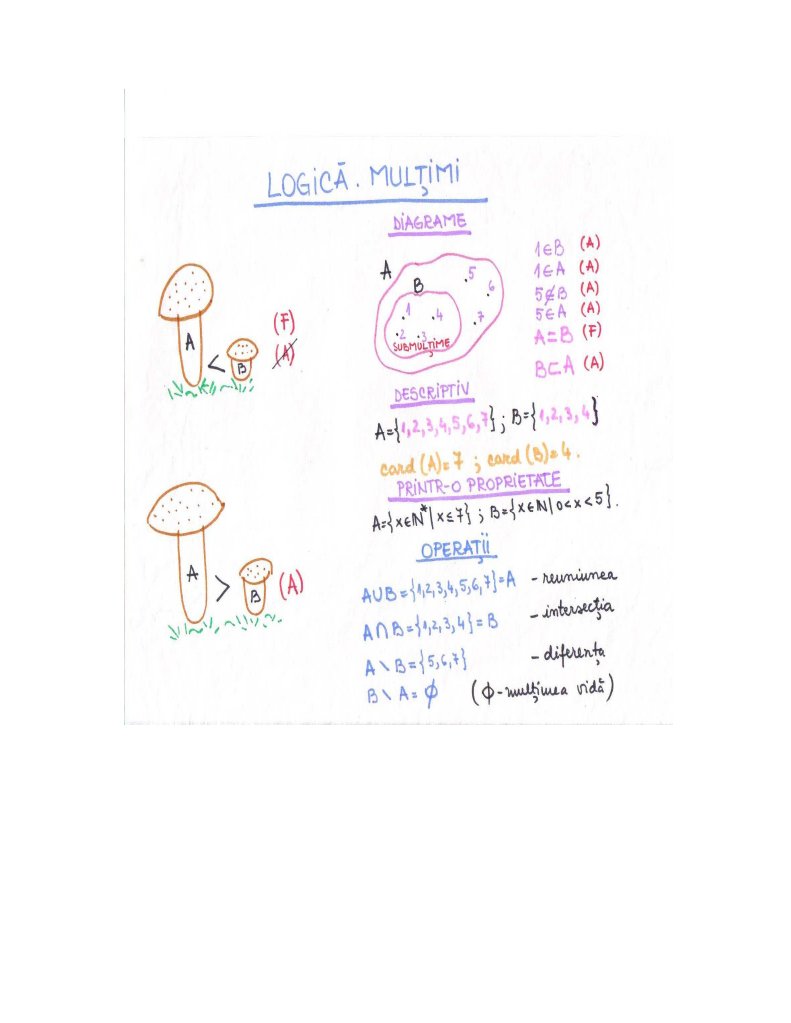 LOGICĂ. MULȚIMI
DIAGRAME
A
B
1
4
2
3
5
6
7
SUBMULȚIME
1∈B (A)
1∈A (A)
5∉B (A)
5∈A (A)
A=B (F)
B⊂A (A)
A < B (F)
(A)
DESCRIPTIV
A={1,2,3,4,5,6,7}; B={1,2,3,4}
card(A)=7 ; card(B)=4.
PRINTR-O PROPRIETATE
A={x∈N*|x≤7} ; B={x∈N|0<x<5}.
A > B (A)
OPERAȚII
A∪B={1,2,3,4,5,6,7}=A - reuniunea
A∩B={1,2,3,4}=B - intersecția
A\B={5,6,7} - diferența
B\A=∅ (∅-mulțimea vidă)